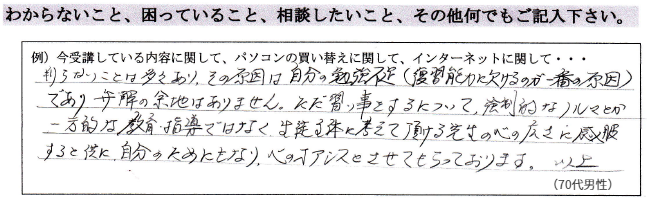 わからないこと、困っていること、相談したいこと、その他何でもご記入下さい。
例）今受講している内容に関して、パソコンの買い替えに関して、インターネットに関して・・・
判らないことは多々あり、その原因は自分の勉強不足（復習能力に欠けるのが一番の原因）
であり弁解の余地はありません。ただ習い事をするについて、強制的なノルマとか
一方的な教育指導ではなく生徒主体に考えて頂ける先生の心の広さに感服
すると供に自分のためにもなり、心のオアシスとさせてもらっております。以上
（70代男性）